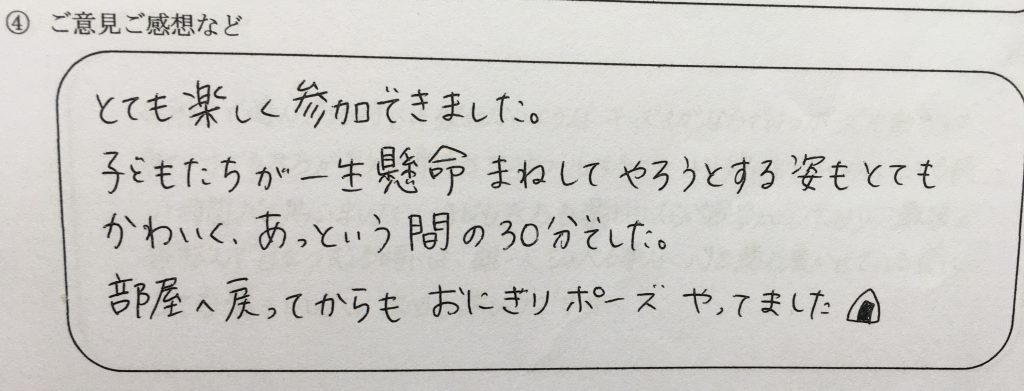 ④ ご意見ご感想など
とても楽しく参加できました。
子どもたちが一生懸命まねしてやろうとする姿もとても
かわいく、あっという間の30分でした。
部屋へ戻ってからもおにぎりポーズやってました🍙